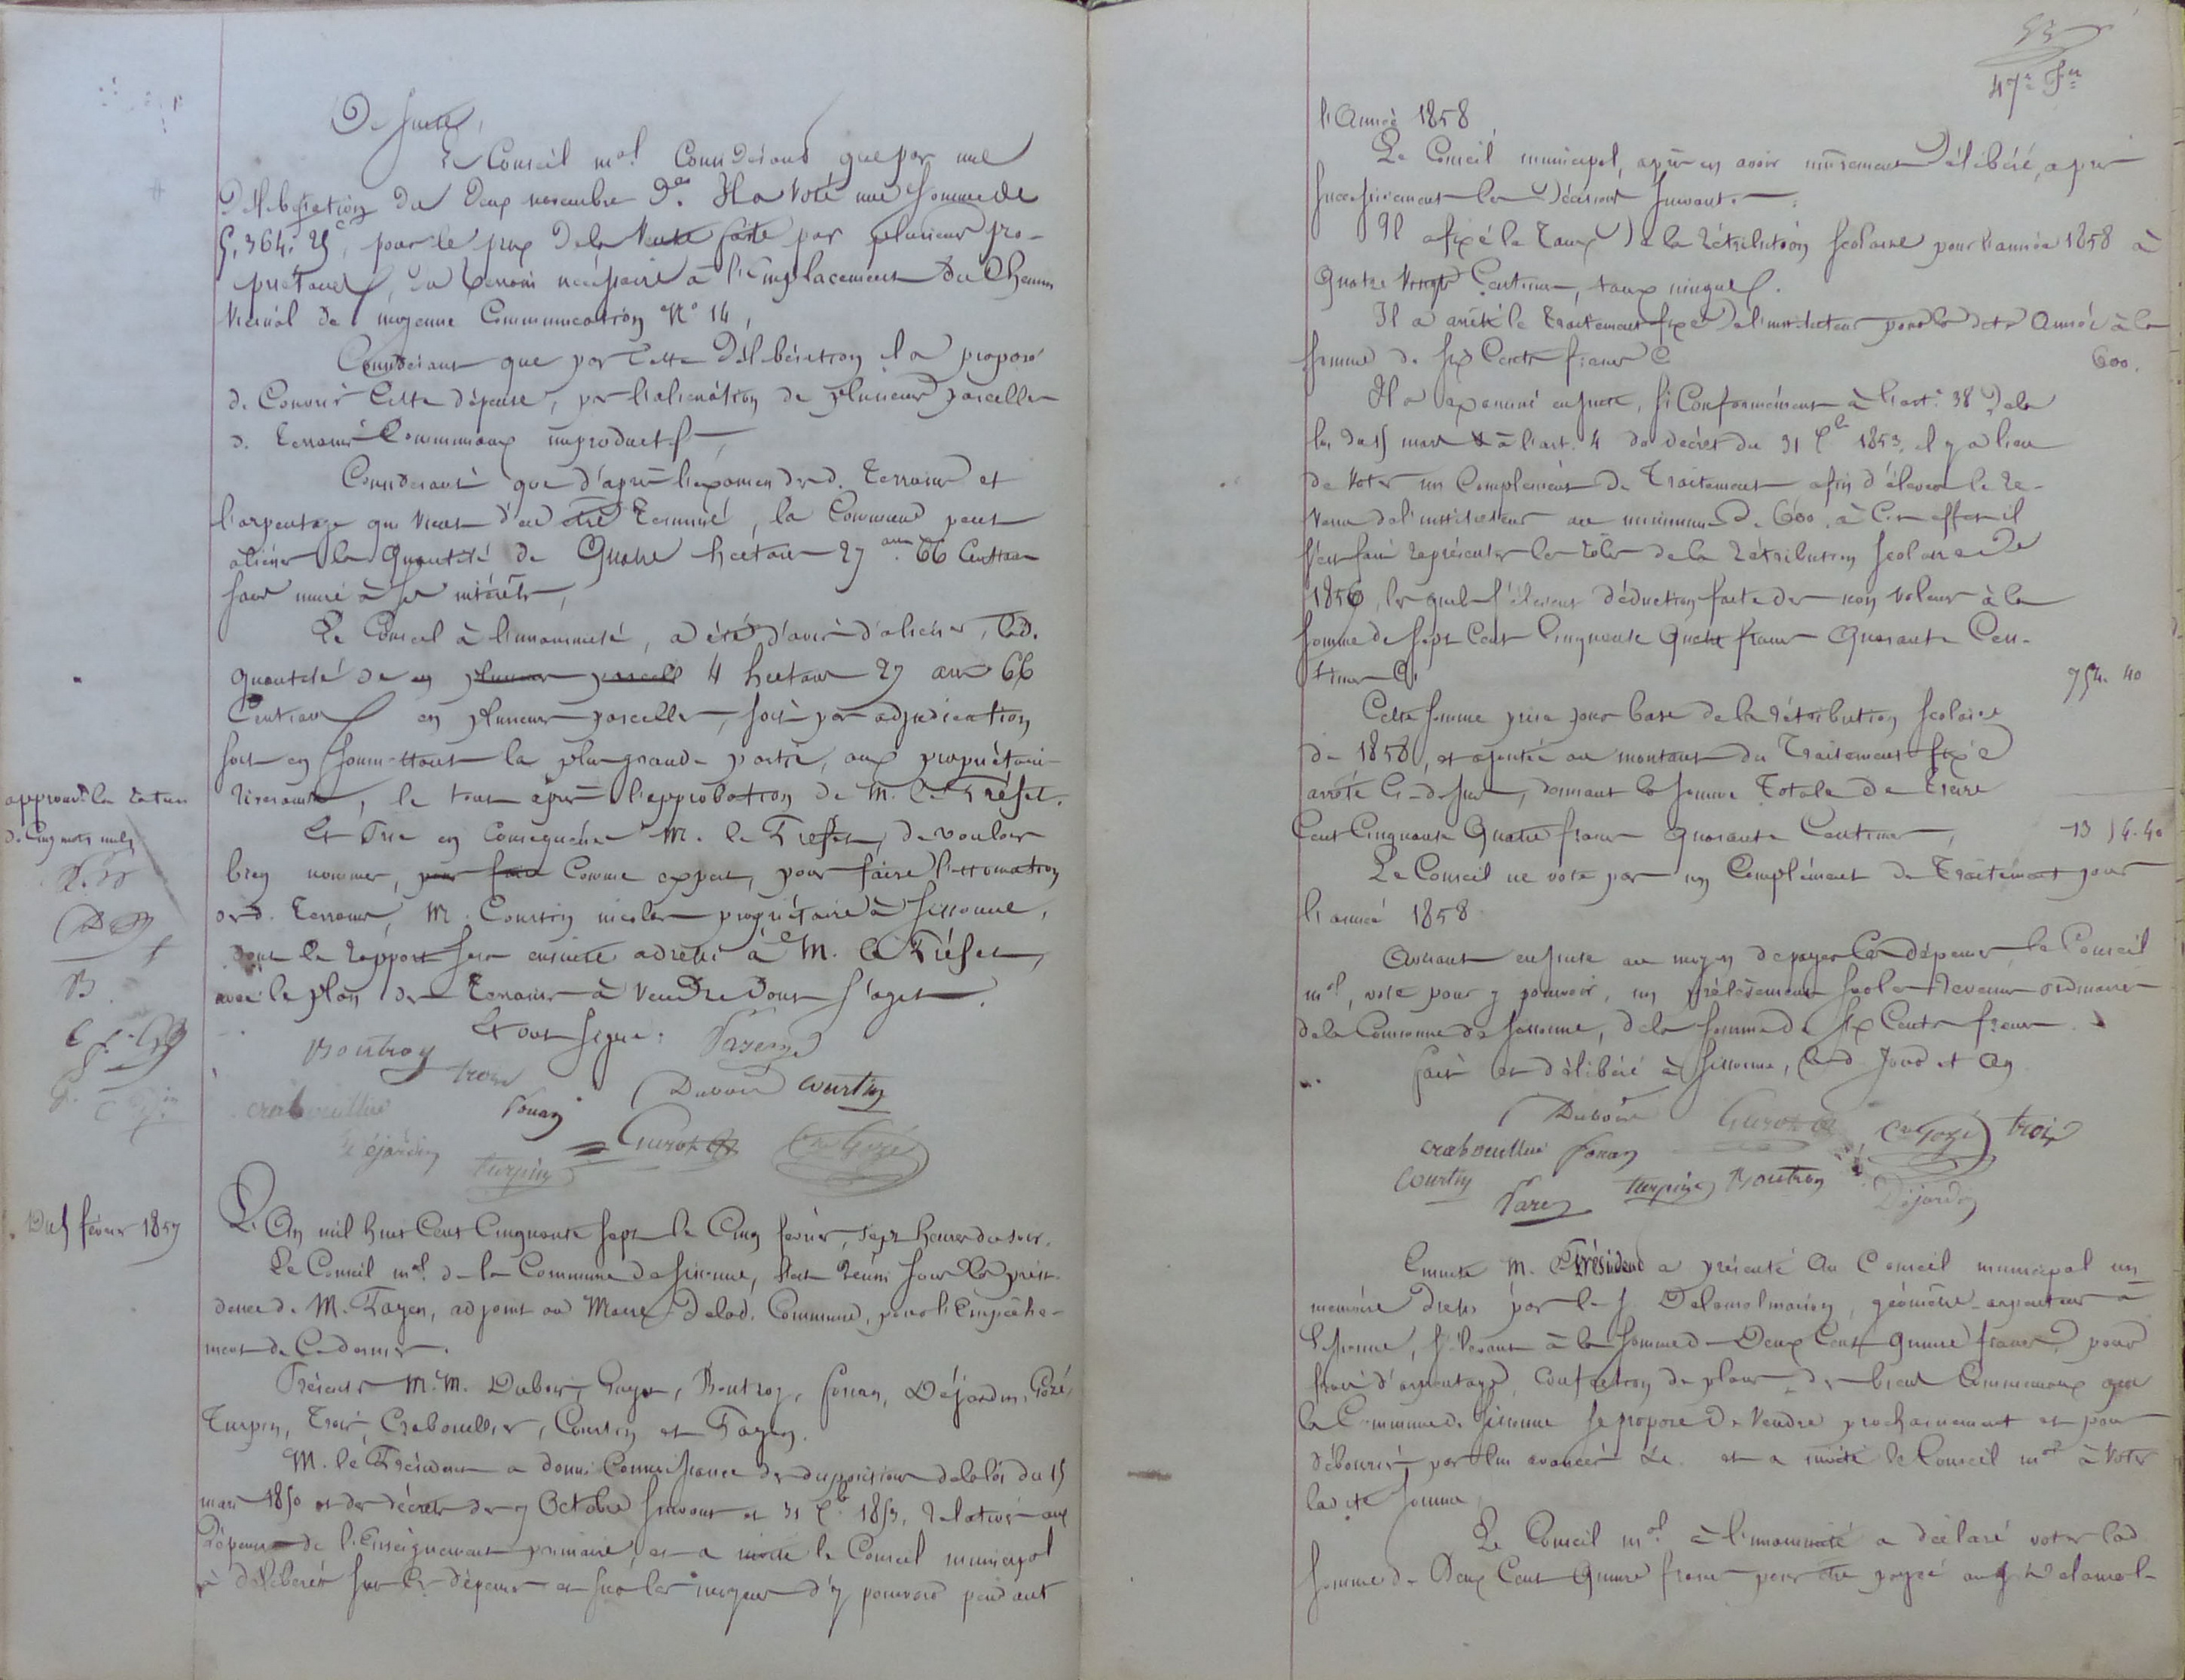 De suite,
Le Conseil mal. Considérant que par une
Délibération du Deux novembre Der. Il a voté une somme de
5,364f 25c, pour le prix de la Vente faite par plusieurs pro-
priétaires, du terrain nécessaire à l'Emplacement du Chemin
Vicinal de moyenne Communication No 14,
Considérant que par cette Délibération il a proposé
de Couvrir Cette dépense, par l'aliénation de plusieurs parcelles
de terrains Communaux improductifs,
Considérant que d'après l'examen desd. Terrains et
l'arpentage qui vient d'en être Terminé, la Commune peut
aliéner la Quantité de Quatre hectares 27 ares 66 Centiares
sans nuire à ses intérêts,
Le Conseil à l'unanimité, a été d'avis d'aliéner, lad.
quantité de en plusieurs parcelles 4 hectares 27 ares 66
Centiares en plusieurs parcelles, soit par adjudication
soit en soumettant la plus grande partie, aux propriétaires
riverains, le tout après l'approbation de M. le Préfet.
Et Prie en Conséquence M. le Préfet, de vouloir
bien nommer, pour faire Comme expert, pour faire l'estimation
desd. terrains, M. Courtin nicolas propriétaire à Sissonne,
dont le rapport sera ensuite adressé à M. le Préfet,
avec le plan des Terrains à vendre dont s'agit.
Et ont signé:
approuvé la rature
de Cinq mots nuls
Boutroy
Payen
trois
Dubois
Courtin
crabouillier
Fouan
Guiot
Gozé
Déjardin
turpin
Du 5 février 1857
L'An mil huit Cent Cinquante sept le Cinq février, sept heures du soir.
Le Conseil mal. de la Commune de Sissonne, s'est réuni sous la prési-
dence de M. Payen, adjoint au Maire de lad. Commune, pour l'Empêche-
ment de Ce dernier.
Présents M.M. Dubois, Boutroy, Fouan, Déjardin, Gozé,
Turpin, Trois, Crabouillier, Courtin et Payen.
M. le Président a donné Connaissance des dispositions de la loi du 15
mars 1850 et des décrets des 7 Octobre suivant et 31 Xbre 1853, relatives aux
Dépenses de l'Enseignement primaire, et a invité le Conseil municipal
à délibérer sur les dépenses et sur les moyens d'y pourvoir pendant
53
47e Fet
l'Année 1858
Le Conseil municipal, après en avoir mûrement délibéré, a pris
successivement les Décisions suivantes.
Il a fixé le Taux de la rétribution scolaire pour l'année 1858 à
Quatre Vingt Centimes, taux unique.
Il a arrêté le traitement fixe de l'instituteur pour lad. Année à la
somme de Six Cents francs Ci
600.
Il a examiné ensuite, si Conformément à l'art. 38 de la
loi du 15 mars & à l'art. 4 du décret du 31 Xbre 1853, il y a lieu
de voter un Complément de Traitement afin d'élever le re-
venu de l'instituteur au minimum de 600, à Cet effet il
s'est fait représenter les rôles de la rétribution scolaire de
1856, lesquels s'élèvent déduction faite des non valeurs à la
somme de Sept Cent Cinquante Quatre francs Quarante Cen-
times Ci
754. 40
Cette somme prise pour base de la rétribution scolaire
de 1858, et ajoutée au montant du Traitement fixe
arrêté Ci-dessus, donnant la somme Totale de treize
Cent Cinquante Quatre francs Quarante Centimes,
1354.40
Le Conseil ne vote pas un Complément de traitement pour
l'année 1858
Avisant ensuite au moyen de payer Ces dépenses, le Conseil
mal, vote pour y pourvoir, un prélèvement sur les revenus ordinaires
de la Commune de Sissonne, de la somme de Six Cents francs
fait et délibéré à Sissonne, lesd. Jour et An
Dubois
Guiot
Gozé
trois
crabouillier
Fouan
Courtin
Payen
turpin
Boutroy
Déjardin
Ensuite M. le Président a présenté au Conseil municipal un
mémoire dressé par le S. Delamalmaison, géomètre-arpenteur à
Sissonne, s'élevant à la somme de Deux Cent quinze francs, pour
frais d'arpentage, Confection de plans, des biens Communaux que
la Commune de Sissonne se propose de Vendre prochainement et pour
déboursés, par lui avancés &c. et a invité le Conseil mal à Voter
ladite somme,
Le Conseil mal à l'unanimité a déclaré voter lad.
somme de Deux Cent Quinze francs pour être payée au S. Delamal-